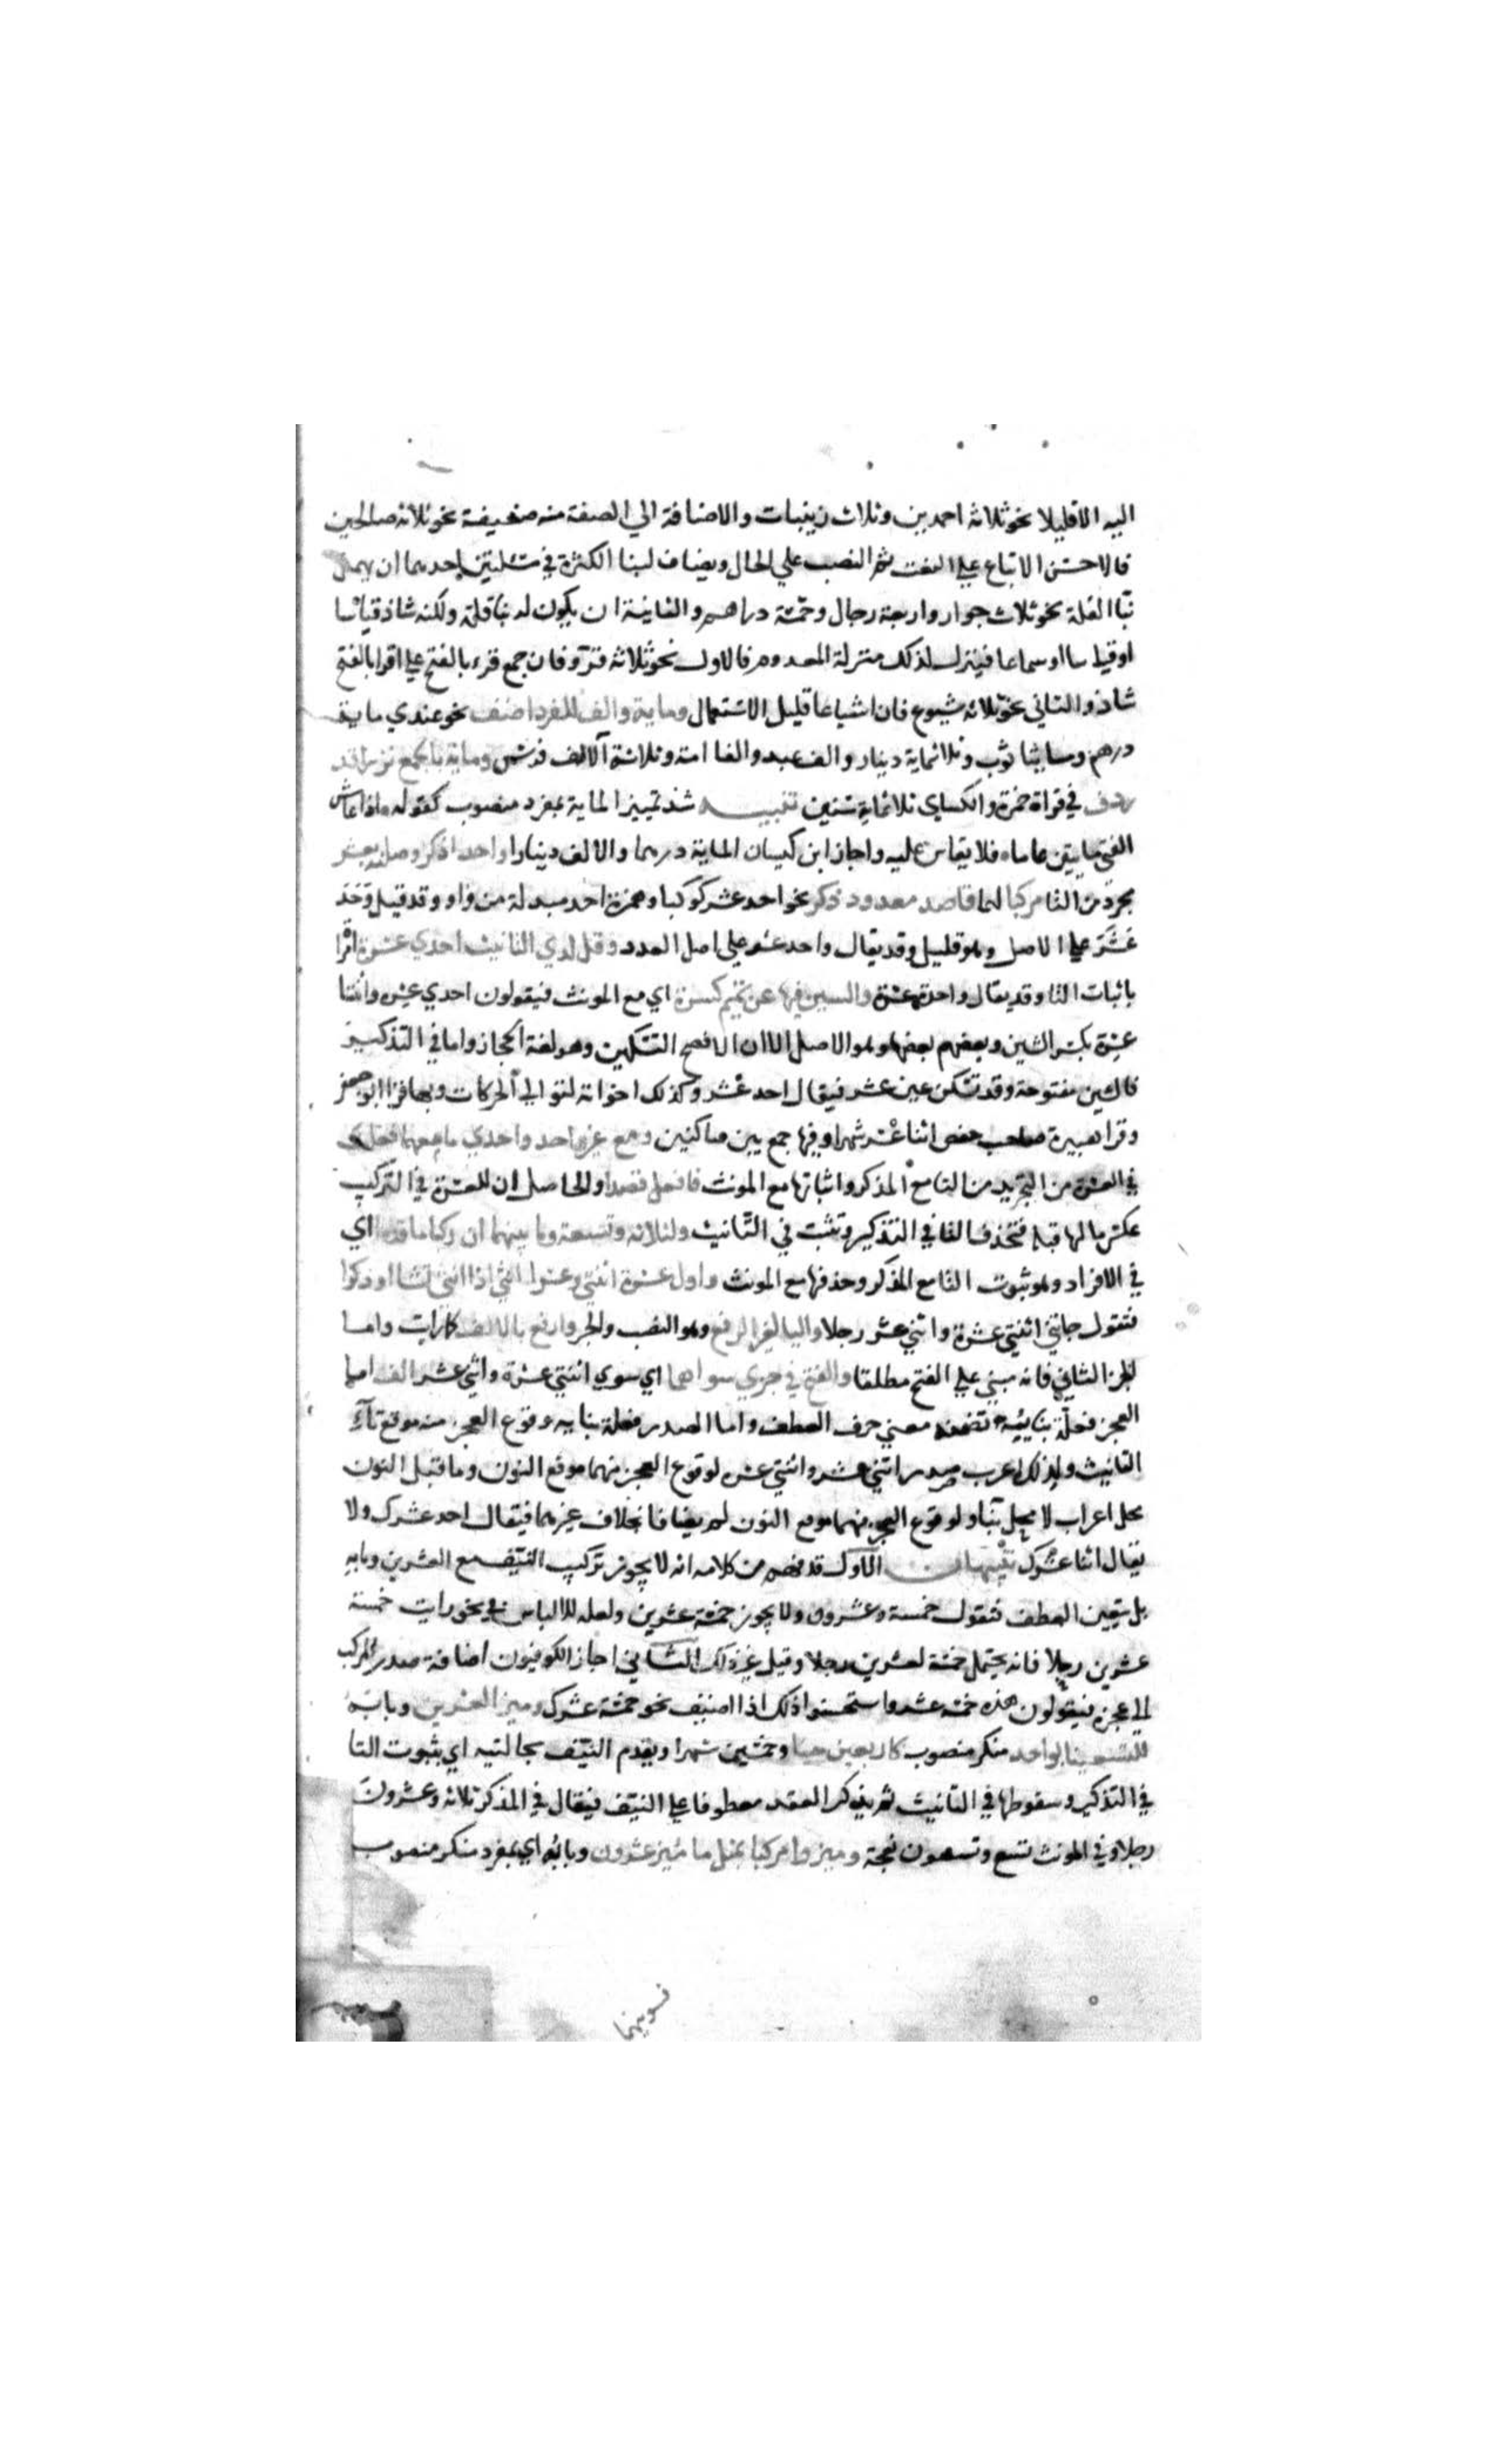 اليه الا قليلا نحو ثلاثة احمدين وثلاث زينبات والاضافة الي الصفة منه ضعيفة نحو ثلاثة صالحين
فالاحسن الاتباع علي النعت ثم النصب علي الحال ويضاف لبنا الكثرة في مسئلتين احدهما ان يهمل
بنا القلة نحو ثلاث جوار واربعة رجال وخمسة دراهم والثانية ان يكون له بنا قلة ولكنه شاذ قياسا
او قياسا او سماعا فينزل لذلك منزلة المعدوم فالاول نحو ثلاثة قروء فان جمع قرء بالفتح علي اقرا بالفتح
شاذ والثاني نحو ثلاثة شسوع فان اشساعا قليل الاستعمال وماية والالف للفرد اضف نحو عندي ماية
درهم ومايتا ثوب وثلاثماية دينار والف عبد والفا امة وثلاثة آلاف فرس وماية بالجمع نزرا قد
ردف في قراة حمزة والكساي ثلاثماية سنين تنبيه شذ تمييز الماية بمفرد منصوب كقوله اذا عاش
الفتي مايتين عاما فلا يقاس عليه واجاز ابن كيسان الماية درهما والالف دينارا واحد اذكر وصلنه بعشر
مجرد من التا مركبا لهما قاصد معدود ذكر نحو احد عشر كوكبا وهمزة احد مبدلة من واو وقد قيل وحد
عشر علي الاصل وهو قليل وقد يقال واحد عشر علي اصل العدد وقل لدي التانيث احدي عشرة امراة
باثبات التا وقد يقال واحدة عشرة والشين فيها عن تميم كسرة اي مع المونث فيقولون احدي عشرة واثنتا
عشرة بكسر الشين وبعضهم يفتحها وهو الاصل الا ان الافصح التسكين وهو لغة الحجاز واما في التذكير
فالشين مفتوحة وقد تسكن عين عشر فيقال احد عشر وكذلك اخواته لتوالي الحركات وبها قرا ابو جعفر
وقرا هبيرة صاحب حفص اثنا عشر شهرا وفيها جمع بين ساكنين ومع غير احد واحدي ما معهما فعلت
في العشرة من التجريد من التا مع المذكر واثباتها مع المونث فافعل قصدا والحاصل ان للعشرة في التركيب
عكس مالها قبله فتحذف التا في التذكير وتثبت في التانيث ولثلاثة وتسعة وما بينهما ان ركبا ما قدما اي
في الافراد وهو ثبوت التا مع المذكر وحذفها مع المونث واول عشرة اثنتي وعشرا اثني اذا انثي تشا او ذكرا
فتقول جاتني اثنتي عشرة واثني عشر رجلا واليا لغير الرفع وهو النصب والجر وارفع بالالف كما رايت واما
الجزء الثاني فانه مبني علي الفتح مطلقا والفتح في جزي سواهما اي سوي اثنتي عشرة واثني عشر الف اما
العجز فعلة بنائه تضمنه معني حرف العطف واما الصدر فعلة بنايه وقوع العجز منه موقع تاء
التانيث ولذلك اعرب صدر اثني عشر واثنتي عشرة لوقوع العجز منهما موقع النون وما قبل النون
محل اعراب لا محل بنا ولوقوع العجز منهما موقع النون لم يضافا بخلاف غيرهما فيقال احد عشرك ولا
يقال اثنا عشرك تنبيهان الاول قد فهم من كلامه انه لا يجوز تركيب النيف مع العشرين وبابه
بل يتعين العطف فتقول خمسة وعشرون ولا يجوز خمسة عشرين ولعله للالباس في نحو رايت خمسة
عشرين رجلا فانه يحتمل خمسة لعشرين رجلا وقيل غير ذلك الثاني اجاز الكوفيون اضافة صدر المركب
الي عجزه فيقولون هذه خمسة عشر واستحسنوا ذلك اذا اضيف نحو خمسة عشرك وميز العشرين وبابه
للتسعينا بواحد منكر منصوب كاربعين حينا وخمسين شهرا ويقدم النيف بحالتيه اي بثبوت التا
في التذكير وسقوطها في التانيث ثم يذكر العقد معطوفا علي النيف فيقال في المذكر ثلاثة وعشرون
رجلا وفي المونث تسع وتسعون نعجة وميزوا مركبا بمثل ما ميز عشرون وبابه اي بمفرد منكر منصوب